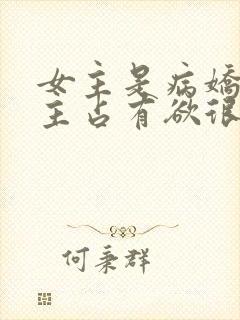 女主是病嬌
主占有欲很
何秉群